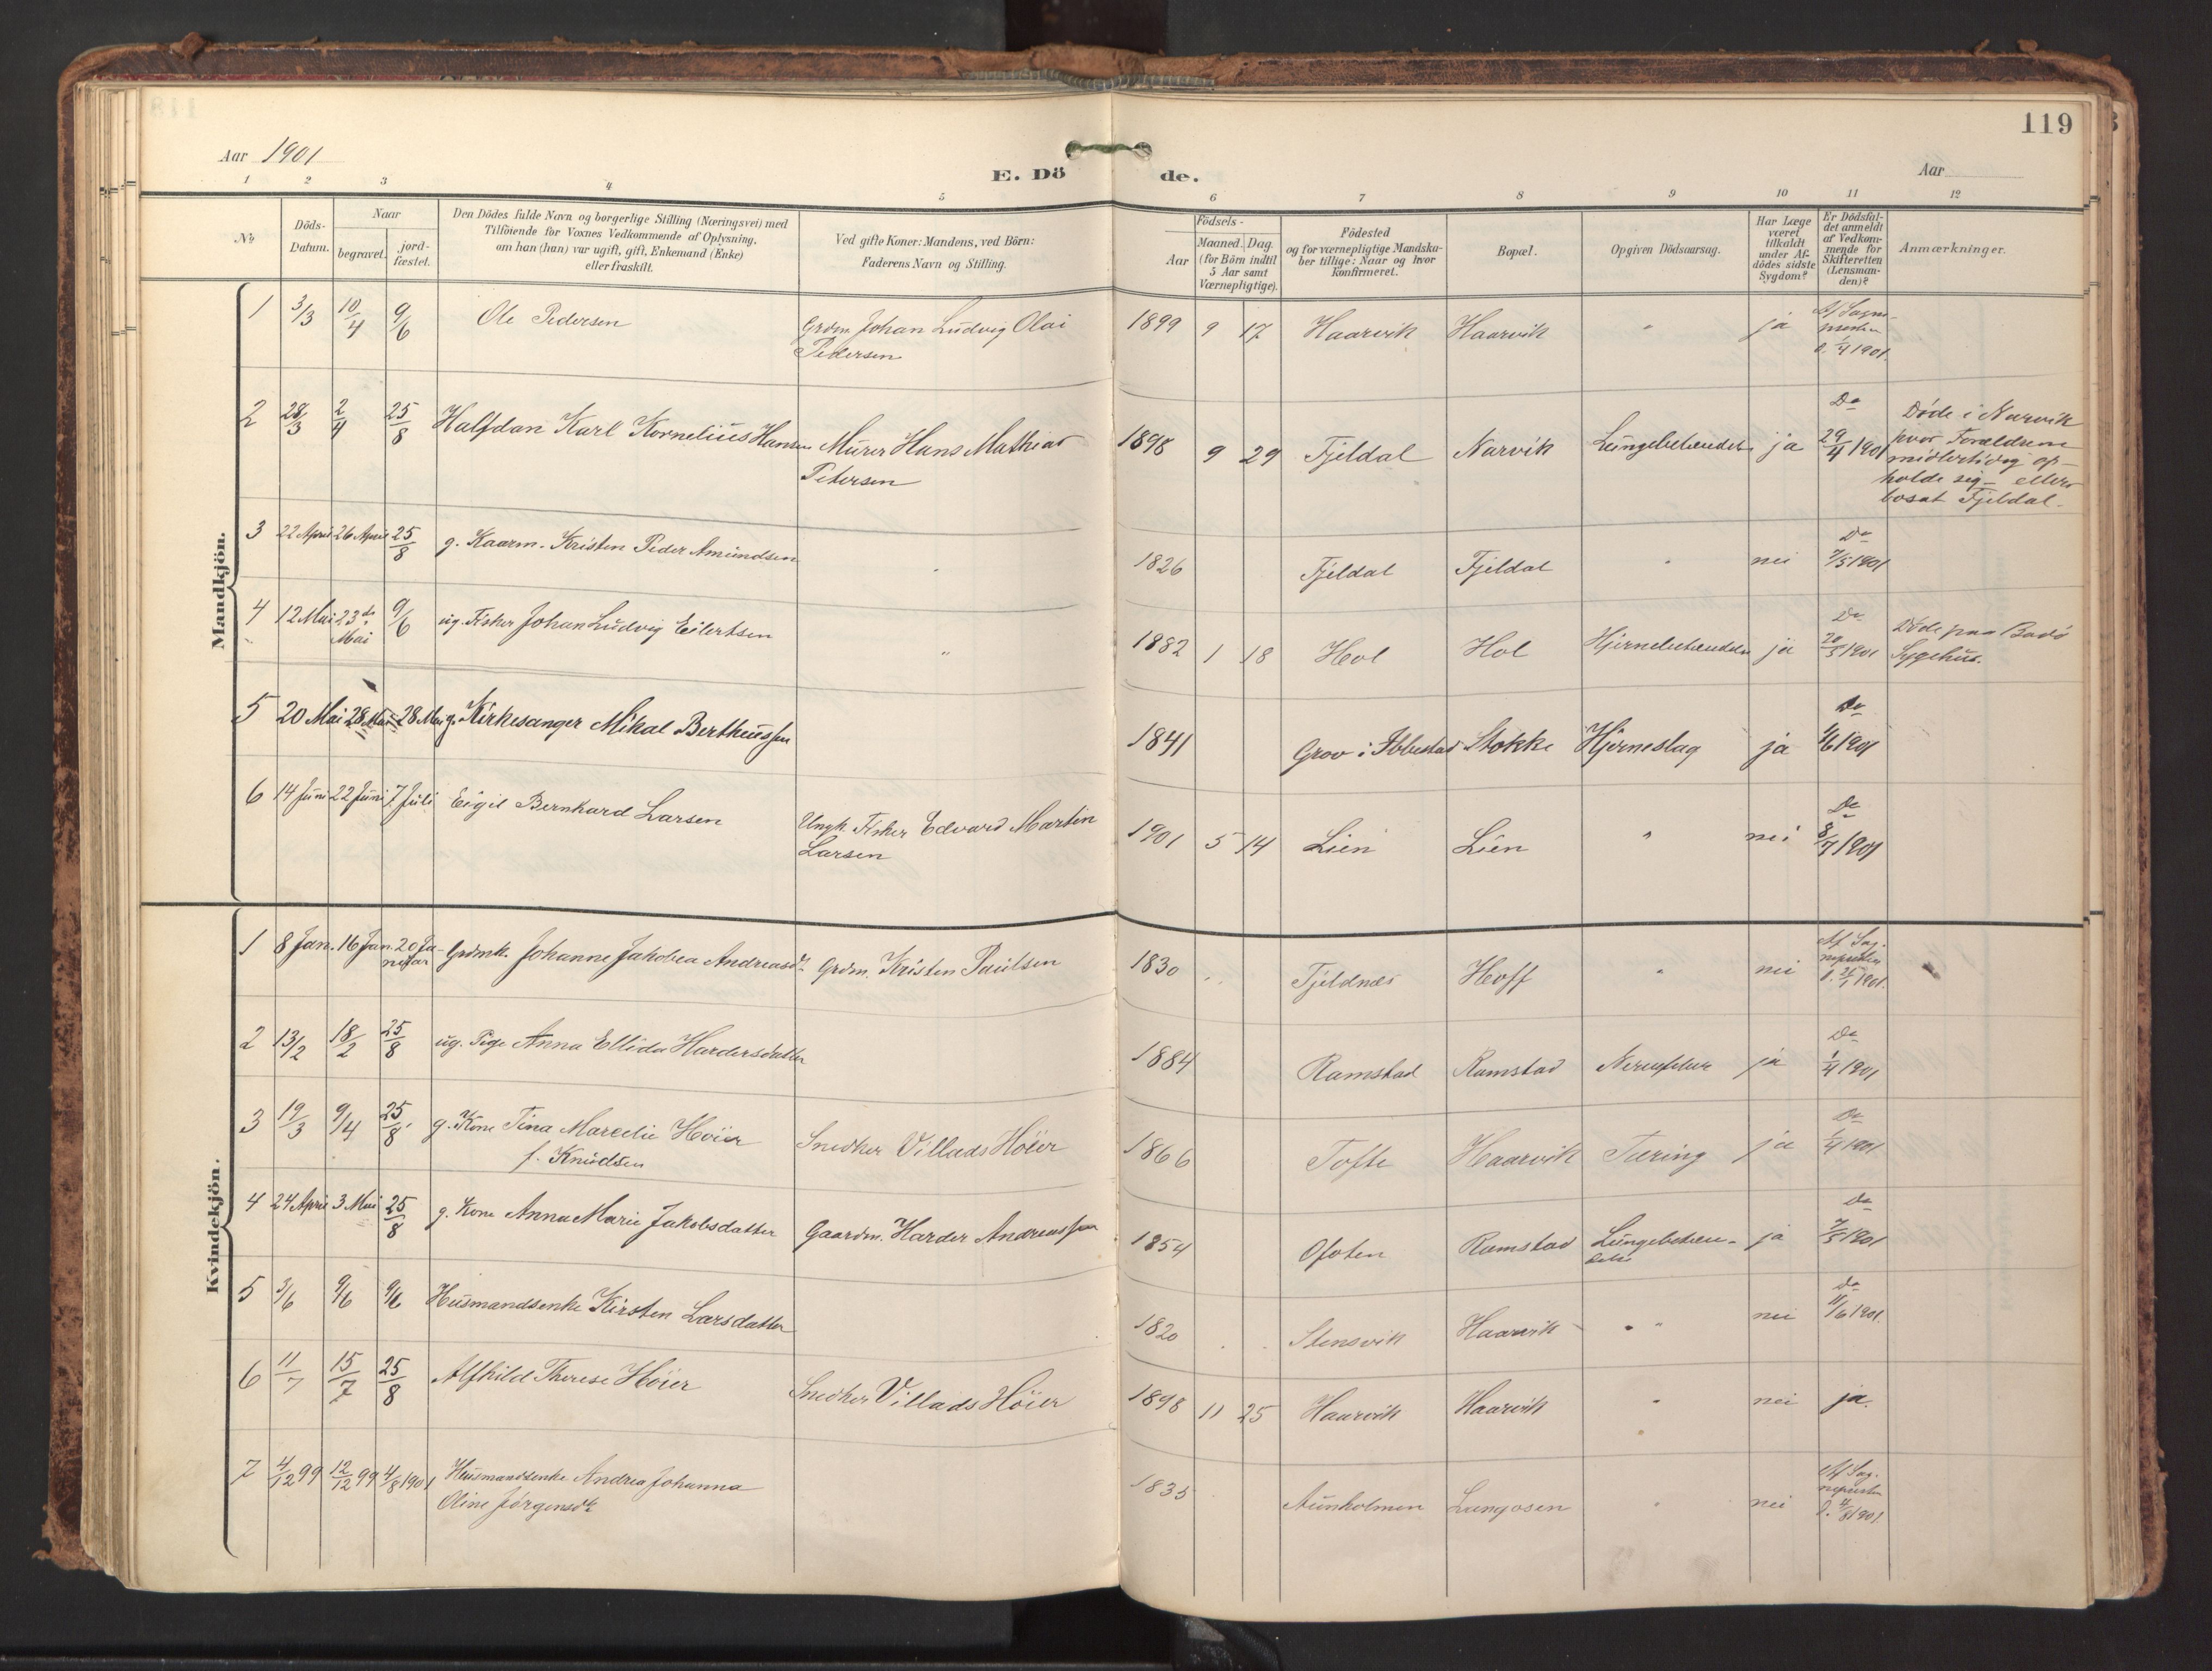 119
Aar 1901
E. Dö de.
Aar
1 2 3 4 5 6 7 8 9 10 11 12
№
Döds-
Datum.
Naar
begravet.
jord-
fæstet.
Den Dödes fulde Navn og borgerlige Stilling (Næringsvei) med
Tilföiende for Voxnes Vedkommende af Oplysning,
om han (hun) var ugift, gift, Enkemand (Enke)
eller fraskilt.
Ved gifte Koner: Mandens, ved Börn:
Faderens Navn og Stilling.
Födsels-
Aar
Maaned. Dag.
(for Börn indtil
5 Aar samt
Værnepligtige).
Födested
og for værnepligtige Mandska-
ber tillige: Naar og hvor
Konfirmeret.
Bopæl.
Opgiven Dödsaarsag.
Har Læge
været
tilkaldt
under Af-
dödes sidste
Sygdom?
Er Dödsfal-
det anmeldt
af Vedkom-
mende for
Skifteretten
(Lensman-
den)?
Anmærkninger.
Mandkjön.
1 3/3 10/4 9/6 Ole Pedersen Grdm. Johan Ludvig Olai
Pedersen
1899 9 17 Haarvik Haarvik " ja Af Sogne-
presten
d. 1/4 1901.
2 28/3 2/4 25/8 Halfdan Karl Kornelius Hansen Murer Hans Mathias
Petersen
1898 9 29 Fjeldal Narvik Lungebetændelse ja Do
29/4 1901
Döde i Narvik
hvor Forældrene
midlertidig op-
holde seg - ellers
bosat Fjeldal.
3 22 April 26 April 25/8 g. Kaarm. Kristen Peder Amundsen "
1826 Fjeldal Fjeldal " nei Do
7/5 1901
4 12 Mai 23de
Mai
9/6 ug. Fisker Johan Ludvig Eilertsen "
1882 1 18 Hol Hol Hjernebetændelse ja Do
20/5 1901
Döde paa Bodö
Sygehus.
5 20 Mai 28 Mai 28 Mai g. Kirkesanger Mikal Bertheussen
1841 Grov i Ibbestad Stokke Hjerneslag ja Do
1/6 1901
6 14 Juni 22 Juni 7 Juli Eigil Bernhard Larsen Ungk. Fisker Edvard Martin
Larsen
1901 5 14 Lien Lien " nei Do
8/7 1901
Kvindekjön.
1 8 Jan. 16 Jan. 20 Ja-
nuar
Grdmk. Johanne Jakobea Andreasdtr Grdm. Kristen Paulsen
1830 Fjeldnes Hoff " nei Af Sog-
nepresten
d. 21/1 1901.
2 13/2 18/2 25/8 ug. Pige Anna Ellida Hardersdatter
1884 Ramstad Ramstad Nervefeber ja Do
1/4 1901
3 19/3 9/4 25/8 g. Kone Tina Marcelie Höier
f. Knudsen
Snedker Villads Höier
1866 Tofte Haarvik Tæring ja Do
1/4 1901
4 24 April 3 Mai 25/8 g. Kone Anna Marie Jakobsdatter Gaardm. Harder Andreassen
1854 Ofoten Ramstad Lungebetæn-
delse
ja do
7/5 1901
5 3/6 9/6 9/6 Husmandsenke Kirsten Larsdatter
1820 Stensvik Haarvik " nei do
11/6 1901.
6 11/7 15/7 25/8 Alfhild Therese Höier Snedker Villads Höier
1898 11 25 Haarvik Haarvik " nei ja.
7 4/12 99 12/12 99 4/8 1901 Husmandsenke Andrea Johanna
Oline Jörgensdtr
1835 Aunholmen Langosen " nei Af Sog-
nepresten
d. 4/8 1901.